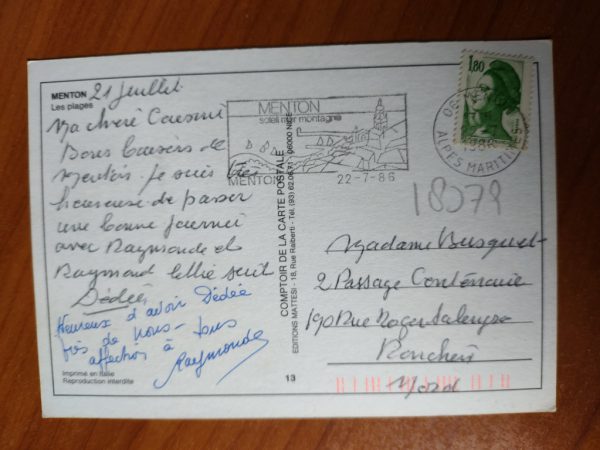 MENTON
Les plages
21 juillet
Ma chère Cousine
Bons baisers de
Menton je suis très
heureuse de passer
une bonne journée
avec Raymonde et
Raymond
Dédée
Heureux d'avoir Dédée
près de nous - tous
affection à
Raymonde
Imprimé en Italie
Reproduction interdite
COMPTOIR DE LA CARTE POSTALE
EDITIONS MATTESI - 18, Rue Raiberti - Tél. (93) 06000 NICE
13
MENTON
soleil mer montagne
MENTON
22-7-86
1,80
ALPES MARITIMES
18079
Madame Busquet
2 Passage Centenaire
190 Rue Roger Salengro
Ronchin
Nord